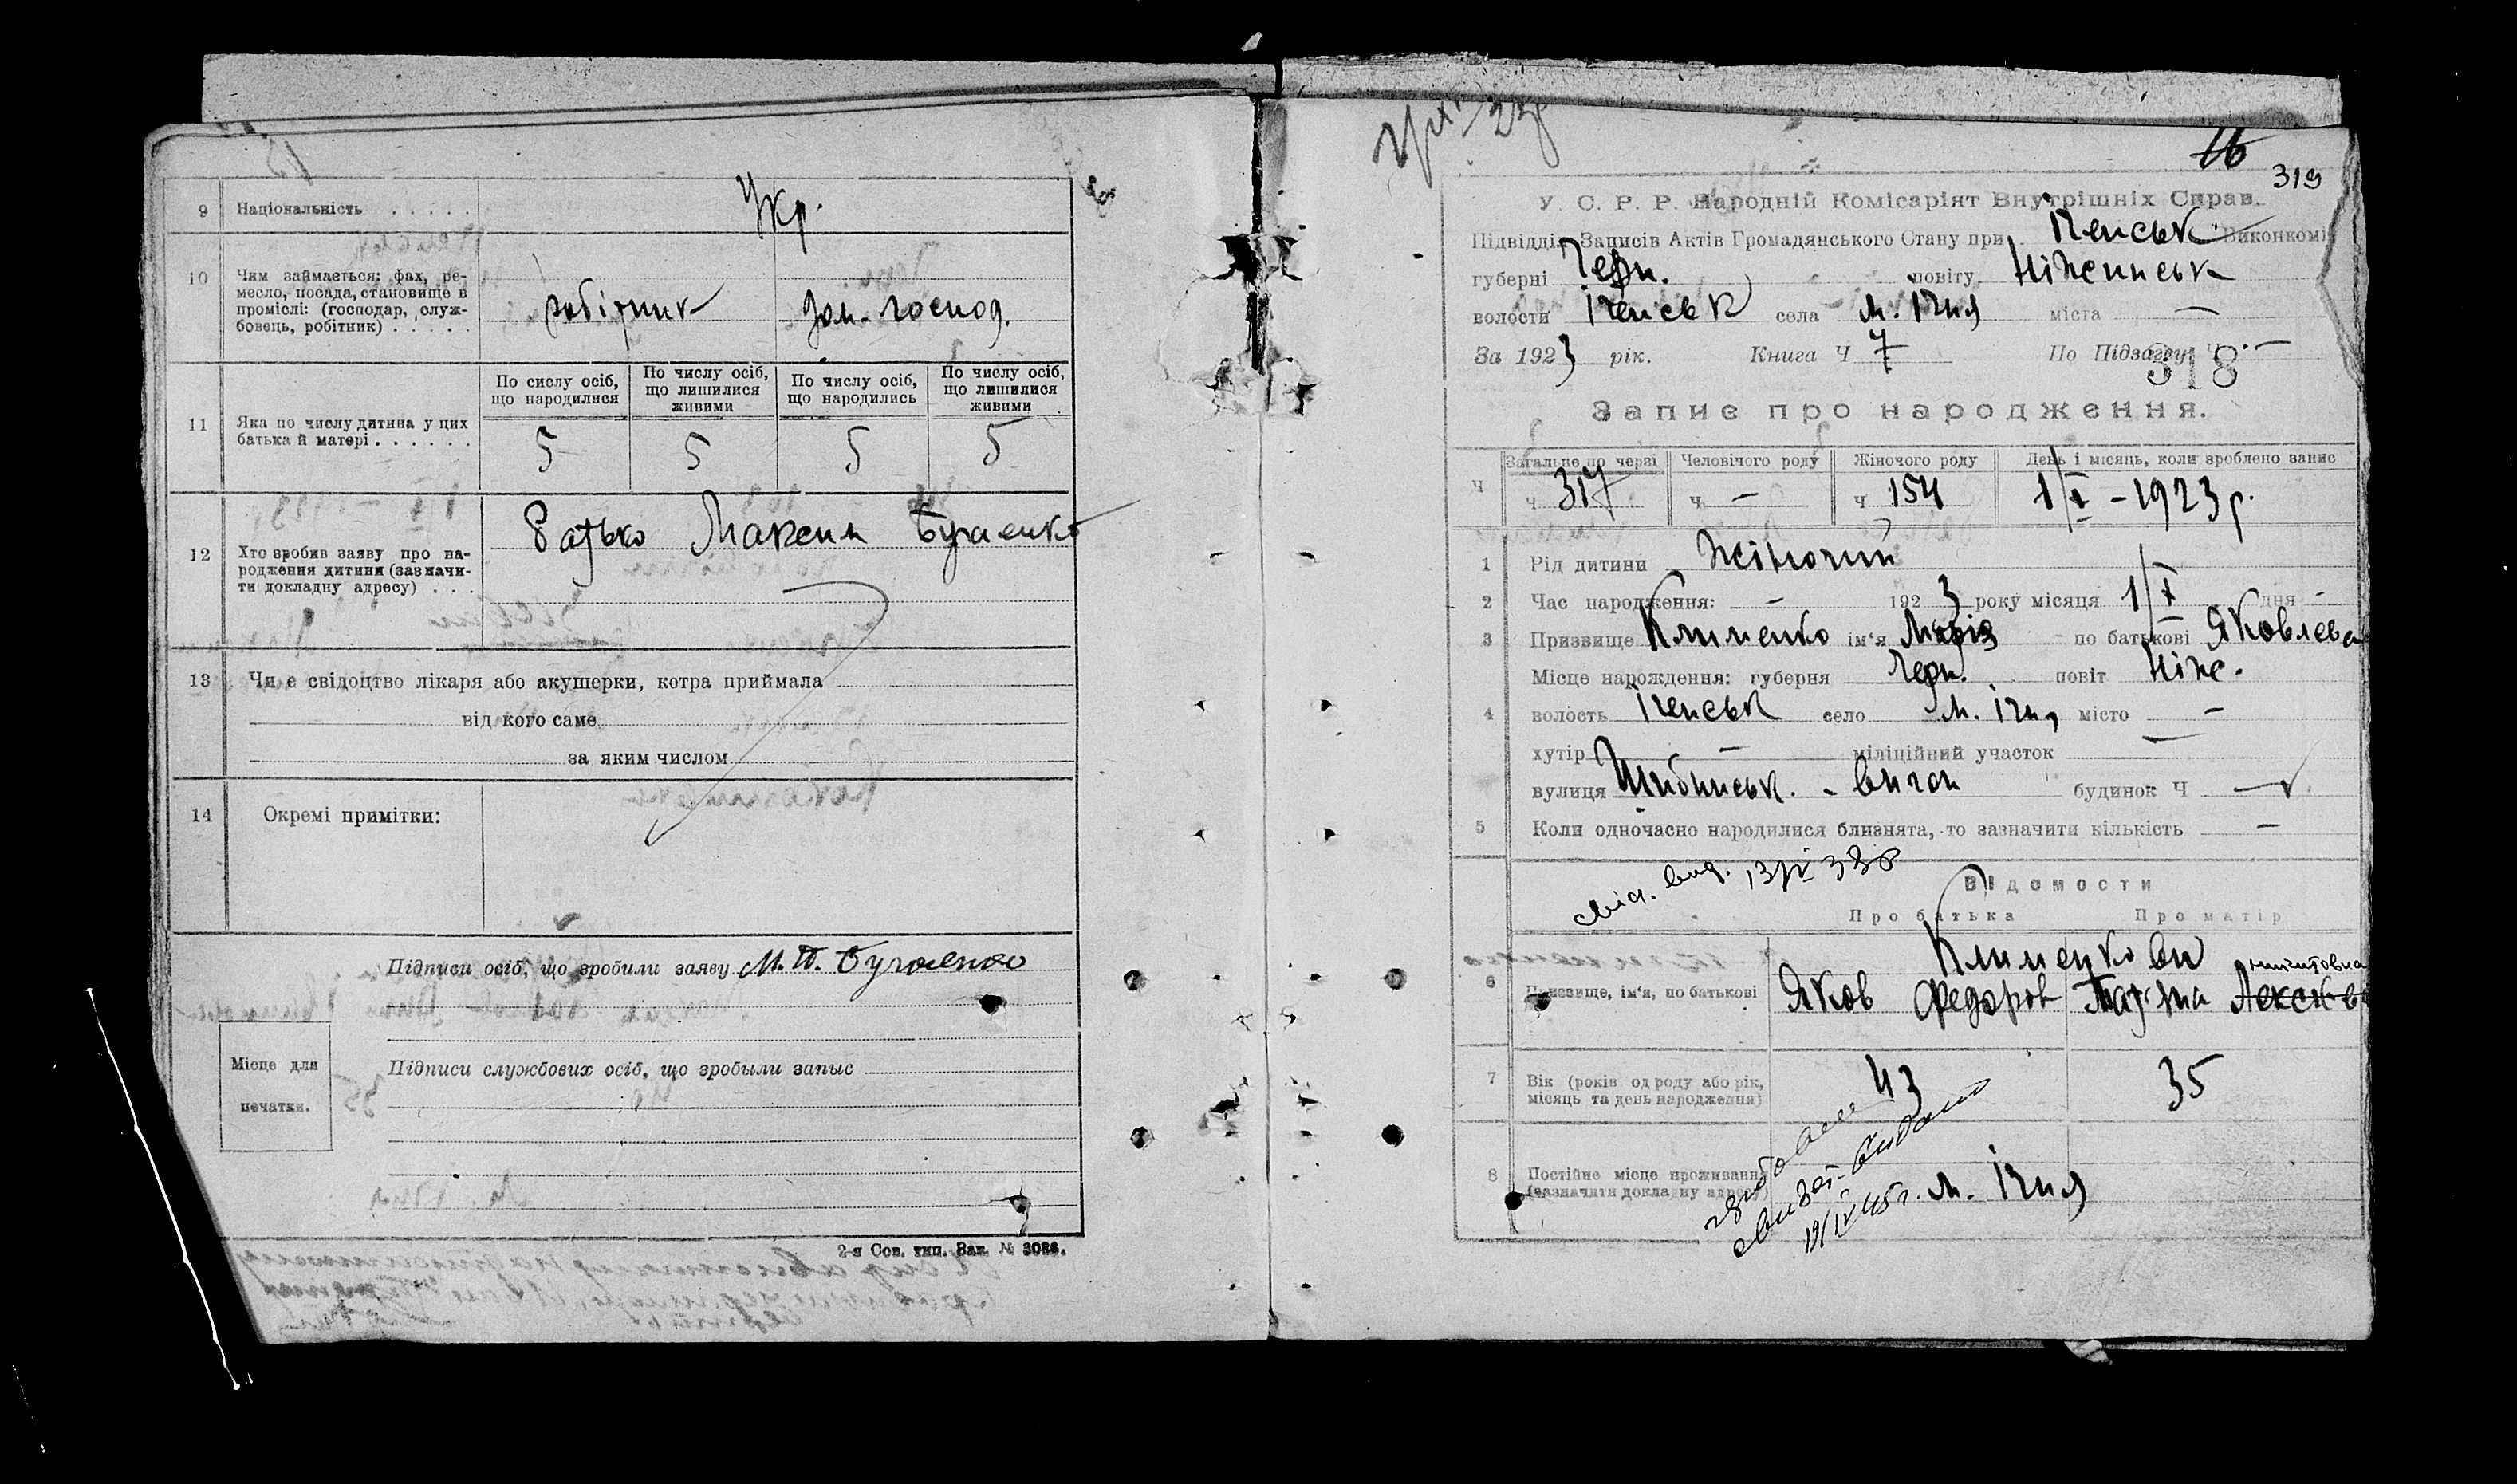 9 Національність . . . . . Укр.
10 Чим займається: фах, ре-
месло, посада, становище в
проміслі: (господар, служ-
бовець, робітник) . . . . . робітник дом. господ.
По сислу осіб, що народилися
По числу осіб, що лишилися живими
По числу осіб, що народились
По числу осіб, що лишилися живими
11 Яка по числу дитина у цих
батька й матері . . . . . . 5 5 5 5
12 Хто зробив заяву про на-
родження дитини (зазначи-
ти докладну адресу) . . . Батько Максим Бугаенко
13 Чи є свідоцтво лікаря або акушерки, котра приймала
від кого саме
за яким числом
14 Окремі примітки:
Підписи осіб, що зробили заяву
Місце для
печатки.
Підписи службових осіб, що зробыли запыс
2-я Сов. тип. Зак. № 3084.
16
319
У. С. Р. Р. Народній Комісаріят Внутрішніх Справ.
Підвідділ Записів Актів Громадянського Стану при Іченськ Виконкомі
губерні Черн. повіту Ніженськ
волости Іченськ села м. Ічня міста —
За 1923 рік. Книга Ч 7 По Підзагсу Ч —
318
Запис про народження.
Загальне по черзі Человічого роду Жіночого роду День і місяць, коли зроблено запис
Ч ч 317 ч — ч 154 1/X – 1923 р.
1 Рід дитини Жіночий
2 Час народження: — 1923 року місяця 1/X дня —
3 Призвище Клименко ім'я Марія по батькові Яковлева
4 Місце нарождення: губерня Черн. повіт Ніж.
волость Іченськ село м. Ічня місто —
хутір — міліційний участок —
вулиця вигон будинок Ч —
5 Коли одночасно народилися близнята, то зазначити кількість —
свід. вид.
Відомости
Про батька Про матір
Клименкови
6 Призвище, ім'я, по батькові Яков Федоров
7 Вік (років од роду або рік,
місяць та день народження) 43 35
8 Постійне місце проживання
(зазначити докладну адресу) м. Ічня
19/IV 45 г.